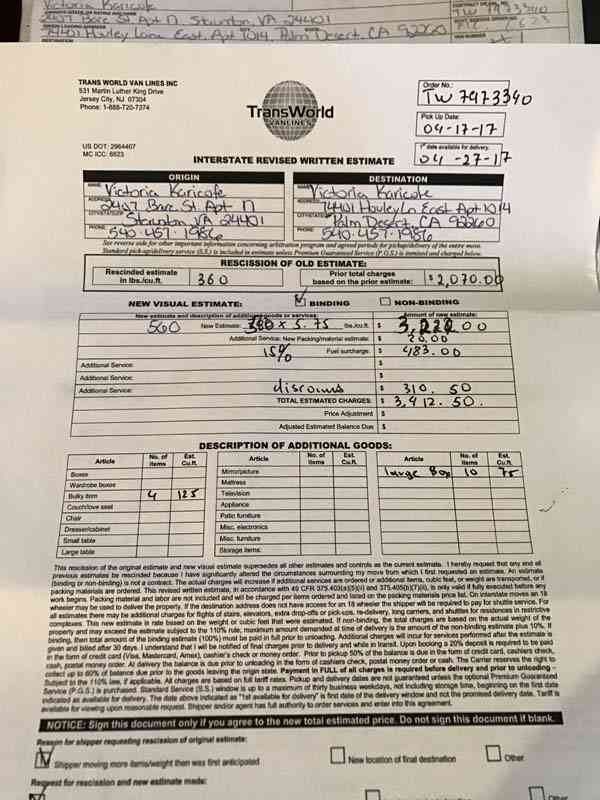 Victoria Karicofe
2407 Bare St. Apt N, Staunton, VA 24401
74401 Hovley Lane East, Apt 1014, Palm Desert, CA 92260
DESTINATION
TW 7973340
TRANS WORLD VAN LINES INC
531 Martin Luther King Drive
Jersey City, NJ 07304
Phone: 1-888-720-7374
TransWorld
VANLINES
Order No.:
TW 7973340
Pick Up Date:
04-17-17
1st date available for delivery.
04-27-17
US DOT: 2964407
MC ICC: 6623
INTERSTATE REVISED WRITTEN ESTIMATE
ORIGIN
NAME Victoria Karicofe
ADDRESS 2407 Bare St. Apt N
CITY/STATE Staunton, VA 24401
PHONE 540-457-1986
DESTINATION
NAME Victoria Karicofe
ADDRESS 74401 Hovley Ln East Apt 1014
CITY/STATE Palm Desert, CA 92260
PHONE 540-457-1986
See reverse side for other important information concerning arbitration program and agreed periods for pickup/delivery of the entire move.
Standard pickup/delivery service (S.S.) is included in estimate unless Premium Guaranteed Service (P.G.S.) is itemized and charged below.
RESCISSION OF OLD ESTIMATE:
Rescinded estimate in lbs./cu.ft. 360
Prior total charges based on the prior estimate: $2,070.00
NEW VISUAL ESTIMATE: BINDING NON-BINDING
New estimate and description of additional goods or services: Amount of new estimate:
560 New Estimate: 380 x 5.75 lbs./cu.ft. $ 3,220.00
Additional Service: New Packing/material estimate: $ 20.00
15% Fuel surcharge: $ 483.00
Additional Service: $
Additional Service: $
Additional Service: discount $ 310.50
TOTAL ESTIMATED CHARGES: $ 3,412.50.
Price Adjustment $
Adjusted Estimated Balance Due $
DESCRIPTION OF ADDITIONAL GOODS:
Article No. of items Est. Cu.ft. Article No. of items Est. Cu.ft. Article No. of items Est. Cu.ft.
Boxes Mirror/picture large Box 10 75
Wardrobe boxes Mattress
Bulky item 4 125 Television
Couch/love seat Appliance
Chair Patio furniture
Dresser/cabinet Misc. electronics
Small table Misc. furniture
Large table Storage items:
This rescission of the original estimate and new visual estimate supersedes all other estimates and controls as the current estimate. I hereby request that any and all
previous estimates be rescinded because I have significantly altered the circumstances surrounding my move from which I first requested an estimate. An estimate
(binding or non-binding) is not a contract. The actual charges will increase if additional services are ordered or additional items, cubic feet, or weight are transported, or if
packing materials are ordered. This revised written estimate, in accordance with 49 CFR 375.403(a)(5)(ii) and 375.405(b)(7)(ii), is only valid if fully executed before any
work begins. Packing material and labor are not included and will be charged per items ordered and listed on the packing materials price list. On interstate moves an 18
wheeler may be used to deliver the property. If the destination address does not have access for an 18 wheeler the shipper will be required to pay for shuttle service. For
all estimates there may be additional charges for flights of stairs, elevators, extra drop-offs or pick-ups, re-delivery, long carriers, and shuttles for residences in restrictive
complexes. This new estimate is rate based on the weight or cubic feet that were estimated. If non-binding, the total charges are based on the actual weight of the
property and may exceed the estimate subject to the 110% rule, maximum amount demanded at time of delivery is the amount of the non-binding estimate plus 10%. If
binding, then total amount of the binding estimate (100%) must be paid in full prior to unloading. Additional charges will incur for services performed after the estimate is
given and billed after 30 days. I understand that I will be notified of final charges prior to delivery and while in transit. Upon booking a 20% deposit is required to be paid
in the form of credit card (Visa, Mastercard, Amex), cashier's check or money order. Prior to pickup 50% of the balance is due in the form of credit card, cashiers check,
cash, postal money order. At delivery the balance is due prior to unloading in the form of cashiers check, postal money order or cash. The Carrier reserves the right to
collect up to 60% of balance due prior to the goods leaving the origin state. Payment in FULL of all charges is required before delivery and prior to unloading -
Subject to the 110% law, if applicable. All charges are based on full tariff rates. Pickup and delivery dates are not guaranteed unless the optional Premium Guaranteed
Service (P.G.S.) is purchased. Standard Service (S.S.) window is up to a maximum of thirty business weekdays, not including storage time, beginning on the first date
indicated as available for delivery. The date above indicated as "1st available for delivery" is first date of the delivery window and not the promised delivery date. Tariff is
available for viewing upon reasonable request. Shipper and/or agent has full authority to order services and enter into this agreement.
NOTICE: Sign this document only if you agree to the new total estimated price. Do not sign this document if blank.
Reason for shipper requesting rescission of original estimate:
Shipper moving more items/weight then was first anticipated New location of final destination Other
Request for rescission and new estimate made:
Other